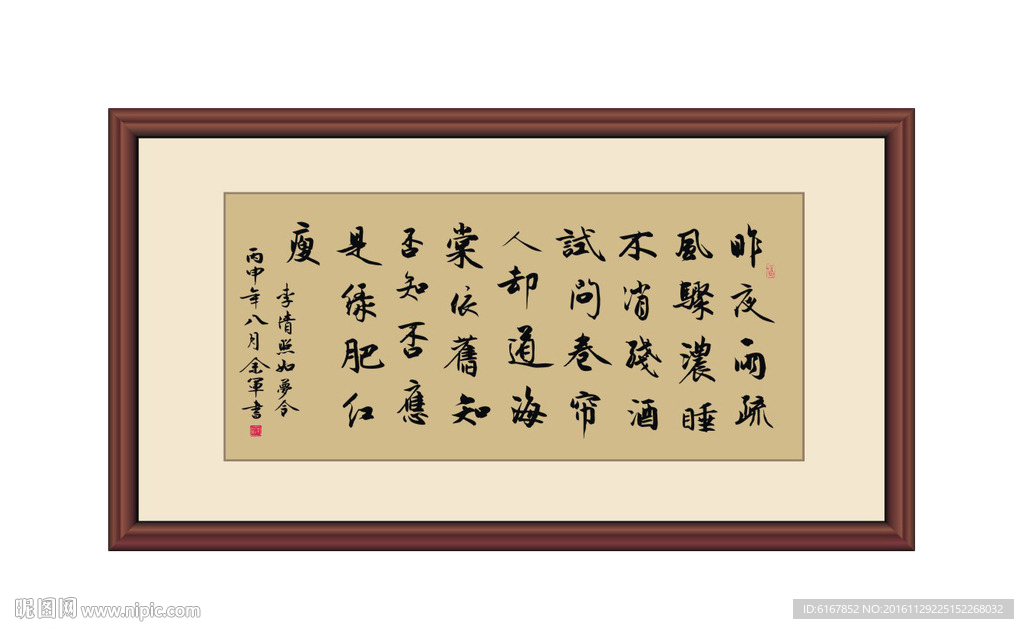 昨夜雨疏
風驟濃睡
不消殘酒
試問卷帘
人却道海
棠依舊知
否知否應
是綠肥红
瘦
李清照如夢令
丙申年八月金軍書
昵图网 www.nipic.com
ID:6167852 NO:20161129225152268032